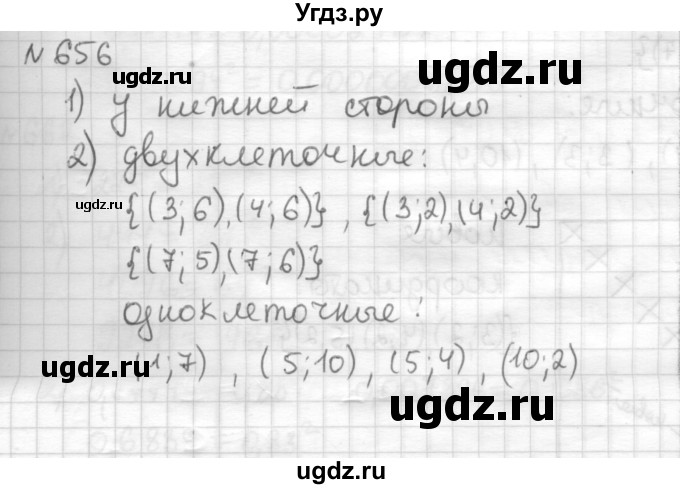 Угдз.ру
N 656
1) у нижней стороны
2) двухклеточные:
ugdz.ru ugdz.ru
{(3;6),(4;6)}, {(3;2),(4;2)}
{(7;5),(7;6)}
одноклеточные:
(1;7), (5;10), (5;4), (10;2)
ugdz.ru ugdz.ru
ugdz.ru